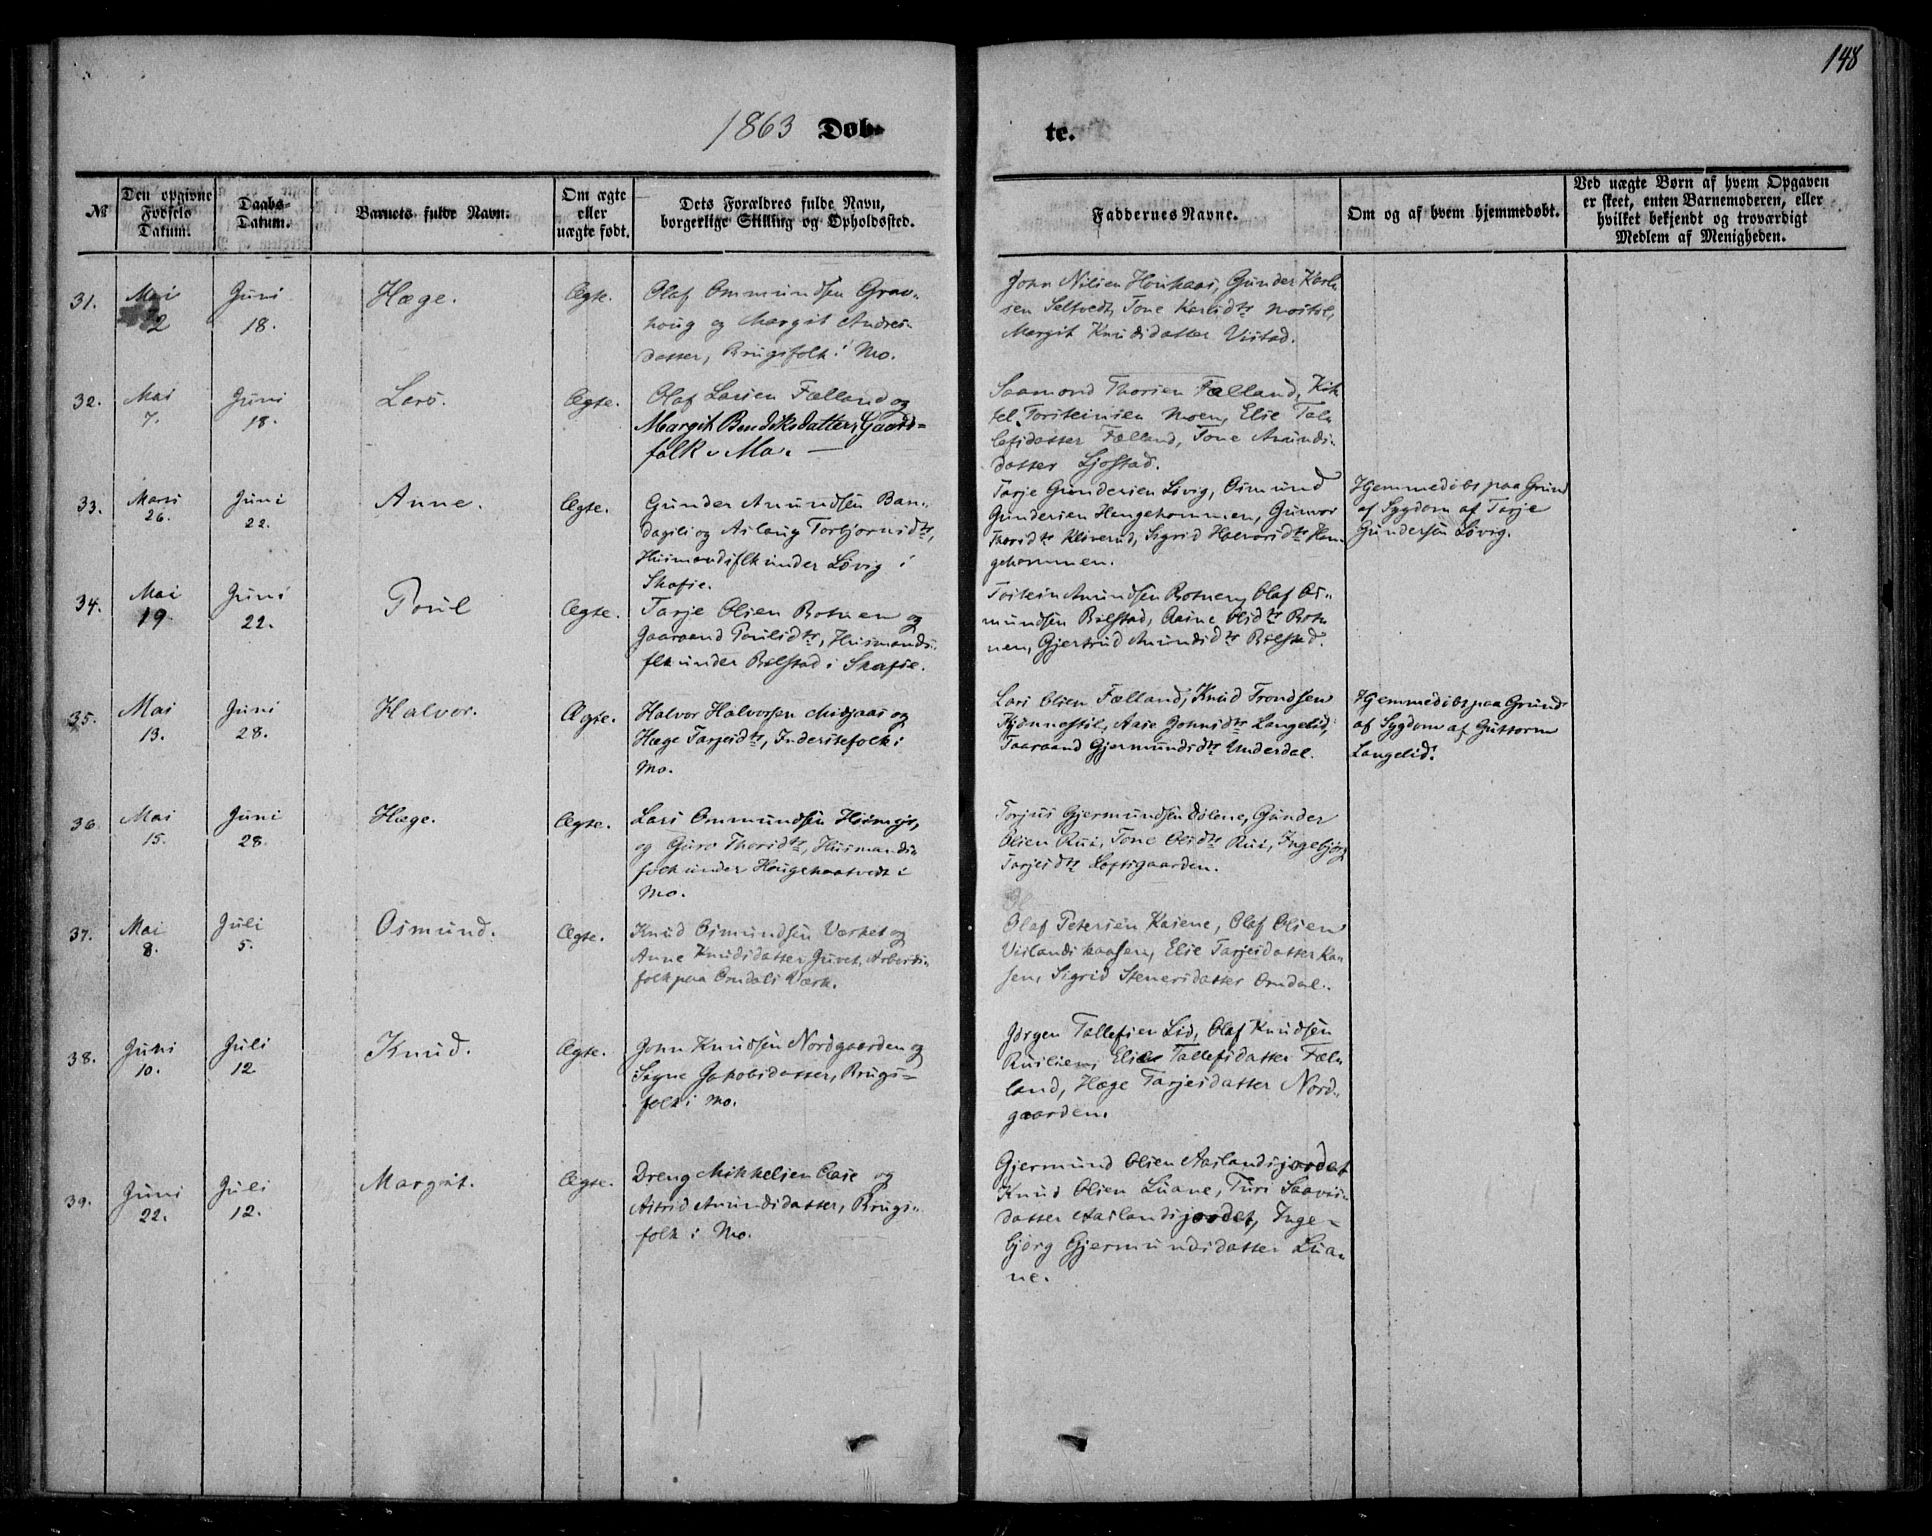 148
1863 Døb-
te.
№
Den opgivne Fødsels Datum.
Daabs-Datum.
Barnets fulde Navn.
Om ægte eller uægte født.
Dets Forældres fulde Navn, borgerlige Stilling og Opholdssted.
Faddernes Navne.
Om og af hvem hjemmedøbt.
Ved uægte Børn af hvem Opgaven er skeet, enten Barnemoderen, eller hvilket bekjendt og troværdigt Medlem af Menigheden.
31.
Mai
2
Juni
18.
Hæge.
Ægte.
Olaf Ommundsen Grav-
houg og Margit Andres-
datter, Brugsfolk i Mo.
John Nilsen Gunder Karl-
sen Seltvedt, Tone Karlsdtr
Margit Knudsdatter Vistad.
32.
Mai
7.
Juni
18.
Lars.
Ægte.
Olaf Larsen Fælland og
Margit Bendiksdatter, Gaard-
folk i Mo.
Saamond Thorsen Fælland, Kit-
tel Torsteinsen Moen, Elie Tal-
lefsdatter Fælland, Tone Amunds-
datter Ljosstad.
33.
Marts
26.
Juni
22.
Anne.
Ægte.
Gunder Amundsen Ban-
dagsli og Aslaug Torbjørnsdtr,
Huusmandsflk under Løvig i
Skafse.
Tarje Gundersen Løvig, Osmund
Gundersen Hengekommen, Gunvor
Thorsdtr Kliverud, Sigrid Halvorsdtr Hen-
gekommen.
Hjemmedøbt paa Grund
af Sygdom af Tarje
Gundersen Løvig.
34.
Mai
19.
Juni
22.
Poul
Ægte.
Tarje Olsen Botnen og
Gaaraand Poulsdtr, Huusmands-
flk under Bølstad i Skafse.
Tostein Amundsen Botnen, Olaf Os-
mundsen Bølstad, Aasne Olsdtr Bot-
nen, Gjertrud Amundsdtr Bølstad.
35.
Mai
13.
Juni
28.
Halvor.
Ægte.
Halvor Halvorsen Midjaas og
Hæge Tarjeisdtr, Inderstefolk i
Mo.
Lars Olsen Fælland, Knud Trondsen
Aase Johnsdtr Langelid,
Taaraand Gjermundsdtr Underdal.
Hjemmedøbt paa Grund
af Sygdom af Guttorm
Langelid.
36.
Mai
15.
Juni
28.
Hæge.
Ægte.
Lars Ommundsen
og Guro Thorsdtr, Huusmands-
folk under i
Mo.
Torjus Gjermundsen Dølene, Gunder
Olsen Rui, Tone Olsdtr Rui, Ingebjørg
Tarjeisdtr Loftsgaarden.
37.
Mai
8.
Juli
5.
Osmund.
Ægte.
Knud Osmundsen Værket og
Anne Knudsdatter Juvet, Arbeids-
folk paa Omdals Værk.
Olaf Petersen Kasene, Olaf Olsen
Elie Tarjeisdatter Ka-
sen, Sigrid Stenersdatter Omdal.
38.
Juni
10.
Juli
12
Knud.
Ægte.
John Knudsen Nordgaarden og
Signe Jakobsdatter, Brugs-
folk i Mo.
Jørgen Tallefsen Lid, Olaf Knudsen
Elie Tallefsdatter Fæl-
land, Hæge Tarjeisdatter Nord-
gaarden.
39.
Juni
22.
Juli
12.
Margit.
Ægte.
Dreng Mikkelsen Aase og
Astrid Amundsdatter, Brugs-
folk i Mo.
Gjermund Olsen Aaslandsjordet
Knud Olsen Luane, Turi Saavis-
datter Aaslandsjordet, Inge-
bjørg Gjermundsdatter Lua-
ne.